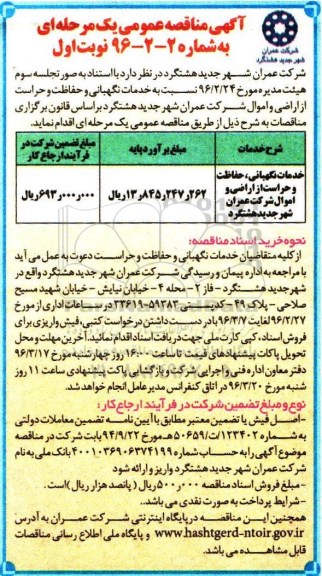 آگهی مناقصه عمومی یک مرحله ای
به شماره ۲-۲-۹۶ نوبت اول
شرکت عمران
شهر جدید هشتگرد
شرکت عمران شهر جدید هشتگرد در نظر دارد با استناد به صورتجلسه سوم
هیئت مدیره مورخ ۹۶/۲/۲۴ نسبت به خدمات نگهبانی و حفاظت و حراست
از اراضی و اموال شرکت عمران شهر جدید هشتگرد بر اساس قانون برگزاری
مناقصات به شرح ذیل از طریق مناقصه عمومی یک مرحله ای اقدام نماید.
شرح خدمات
مبلغ برآورد پایه
مبلغ تضمین شرکت در فرآیند ارجاع کار
خدمات نگهبانی، حفاظت
و حراست از اراضی و
اموال شرکت عمران
شهر جدید هشتگرد
۱۳٫۸۴۵٫۲۴۷٫۲۶۲ ریال
۶۹۳٫۰۰۰٫۰۰۰ ریال
نحوه خرید اسناد مناقصه:
از کلیه متقاضیان خدمات نگهبانی و حفاظت و حراست دعوت به عمل می آید
با مراجعه به اداره پیمان و رسیدگی شرکت عمران شهر جدید هشتگرد واقع در
شهر جدید هشتگرد - فاز ۲ - محله ۴ - خیابان نیایش - خیابان شهید مسیح
صلاحی - پلاک ۴۹ - کد پستی ۵۹۳۸۳-۳۳۶۱۹ در ساعات اداری از مورخ
۹۶/۲/۲۷ لغایت ۹۶/۳/۷ با در دست داشتن درخواست کتبی، فیش واریزی برای
فروش اسناد، کپی کارت ملی جهت دریافت اسناد اقدام نمایند. آخرین مهلت و محل
تحویل پاکات پیشنهادهای قیمت تا ساعت ۱۶:۰۰ روز چهارشنبه مورخ ۹۶/۳/۱۷
دفتر معاون اداره فنی و اجرایی شرکت و بازگشایی پاکت پیشنهادی ساعت ۱۱ روز
شنبه مورخ ۹۶/۳/۲۰ در اتاق کنفرانس مدیرعامل انجام خواهد شد.
نوع و مبلغ تضمین شرکت در فرآیند ارجاع کار:
- اصل فیش یا تضمین معتبر مطابق با آیین نامه تضمین معاملات دولتی
به شماره ۱۲۳۴۰۲/ت۵۰۶۵۹هـ مورخ ۹۴/۹/۲۲ بابت شرکت در مناقصه
موضوع آگهی را به حساب شماره ۴۰۰۱۰۳۶۹۰۶۳۷۴۱۹۹ بانک ملی به نام
شرکت عمران شهر جدید هشتگرد واریز و ارائه شود
- مبلغ فروش اسناد مناقصه ۵۰۰٫۰۰۰ ریال (پانصد هزار ریال) است.
- شرایط پرداخت به صورت نقدی می باشد.
همچنین این مناقصه در پایگاه اینترنتی شرکت عمران به آدرس
www.hashtgerd-ntoir.gov.ir و پایگاه ملی اطلاع رسانی مناقصات
قابل مشاهده می باشد.